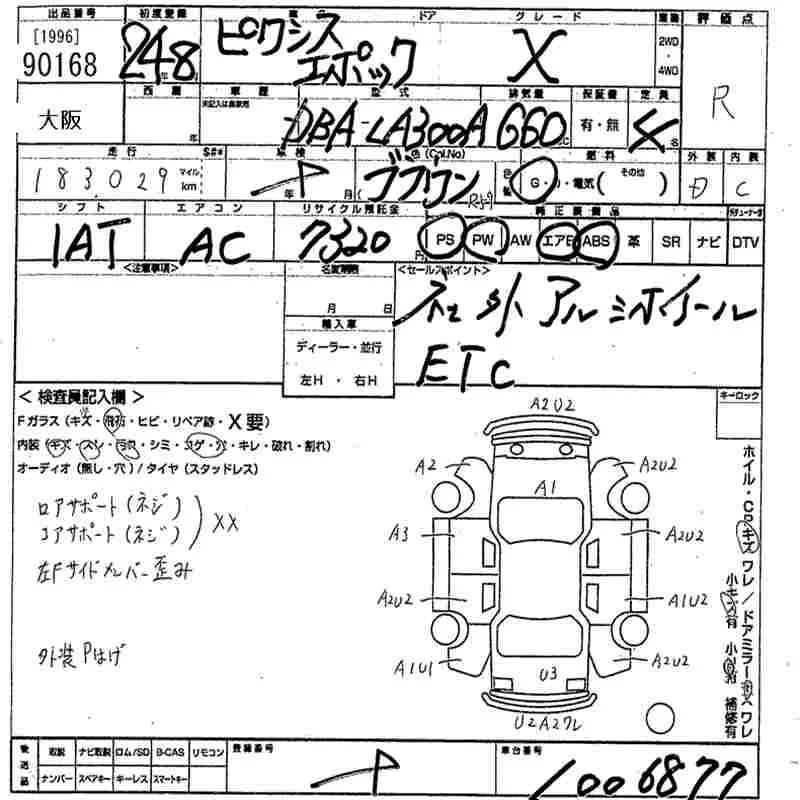 出品番号 初度登録 車名 ドア グレード 車歴 評価点
[1996]
90168 24 8 年 ピクシス エポック X 2WD ・ 4WD R
大阪 西暦 年 車歴 未記入は自家用 型式 DBA-LA300A 排気量 660 cc 保証書 有・無 定員 4
走行 183,029 マイル km 車検 年 月 色(Col.No) ブラウン R59 燃料 G・ ・電気( その他 ) 外装 D 内装 C
シフト 1AT エアコン AC リサイクル預託金 7320 円 純正装備品 PS PW AW エアB ABS 革 SR ナビ DTV
<注意事項> 名変期限 月 日 <セールスポイント>
輸入車 ディーラー・並行 左H・右H
社外アルミホイール
ETC
<検査員記入欄> キーロック
Fガラス(キズ・飛石・ヒビ・リペア跡・X要)
内装(キズ・スレ・ ・シミ・コゲ・穴・キレ・破れ・割れ)
オーディオ(無し・穴)/タイヤ(スタッドレス)
ロアサポート(ネジ)
コアサポート(ネジ) XX
左Fサイドメンバー歪み
外装Pはげ
A2U2
A2 A1 A2U2
A3 A2U2
A2U2 A1U2
A1U1 U3 A2U2
U2A2ワレ
ホイル・CP キズ ワレ/ドアミラー キズ ワレ
小キズ有 小凹有 補修有
後送品 取説 ナビ取説 ロム/SD B-CAS リモコン 登録番号 車台番号
ナンバー スペアキー キーレス スマートキー 1006877